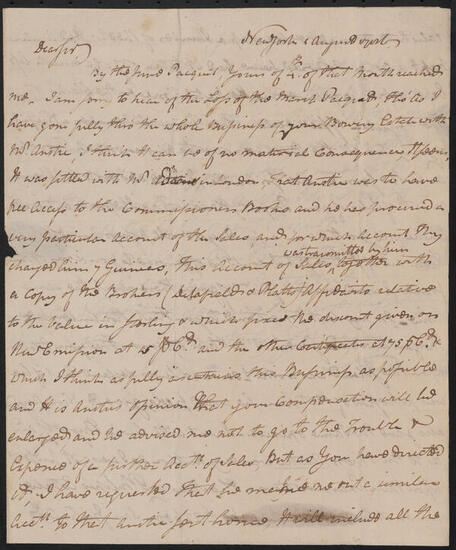 Dear Sir New York 2 August
By the June Pacquet, Yours of 4th. of that Month reached
me. I am sorry to hear of the Loss of the March Pacquet, tho' as I
have gone fully thro the whole Business of your Bowery Estate with
Mr Anstie, I think it can be of no material Consequence, it seems,
it was settled with Mr in London, that Anstie was to have
free Access to the Commissioners Books and he has procured a
very particular Account of the Sales and for which Account They
charged him 7 Guineas, this Account of Sales, was transmitted by him together with
a Copy of the Brokers (Delafield & Platt) Affidavits relative
to the Value in Sterling & which fixed the discount given on
New Emission at 15/6d. and the other Certificates at 7/ 6d. &
which I think as fully ascertains this Business as possible
and it is Ansties opinion that your Compensation will be
enlarged and he advised me not to go to the Trouble &
Expence of a further Acct. of Sales, But as You have directed
it, I have requested that he make me out a similar
Acct. to that Anstie sent home. It will include all the